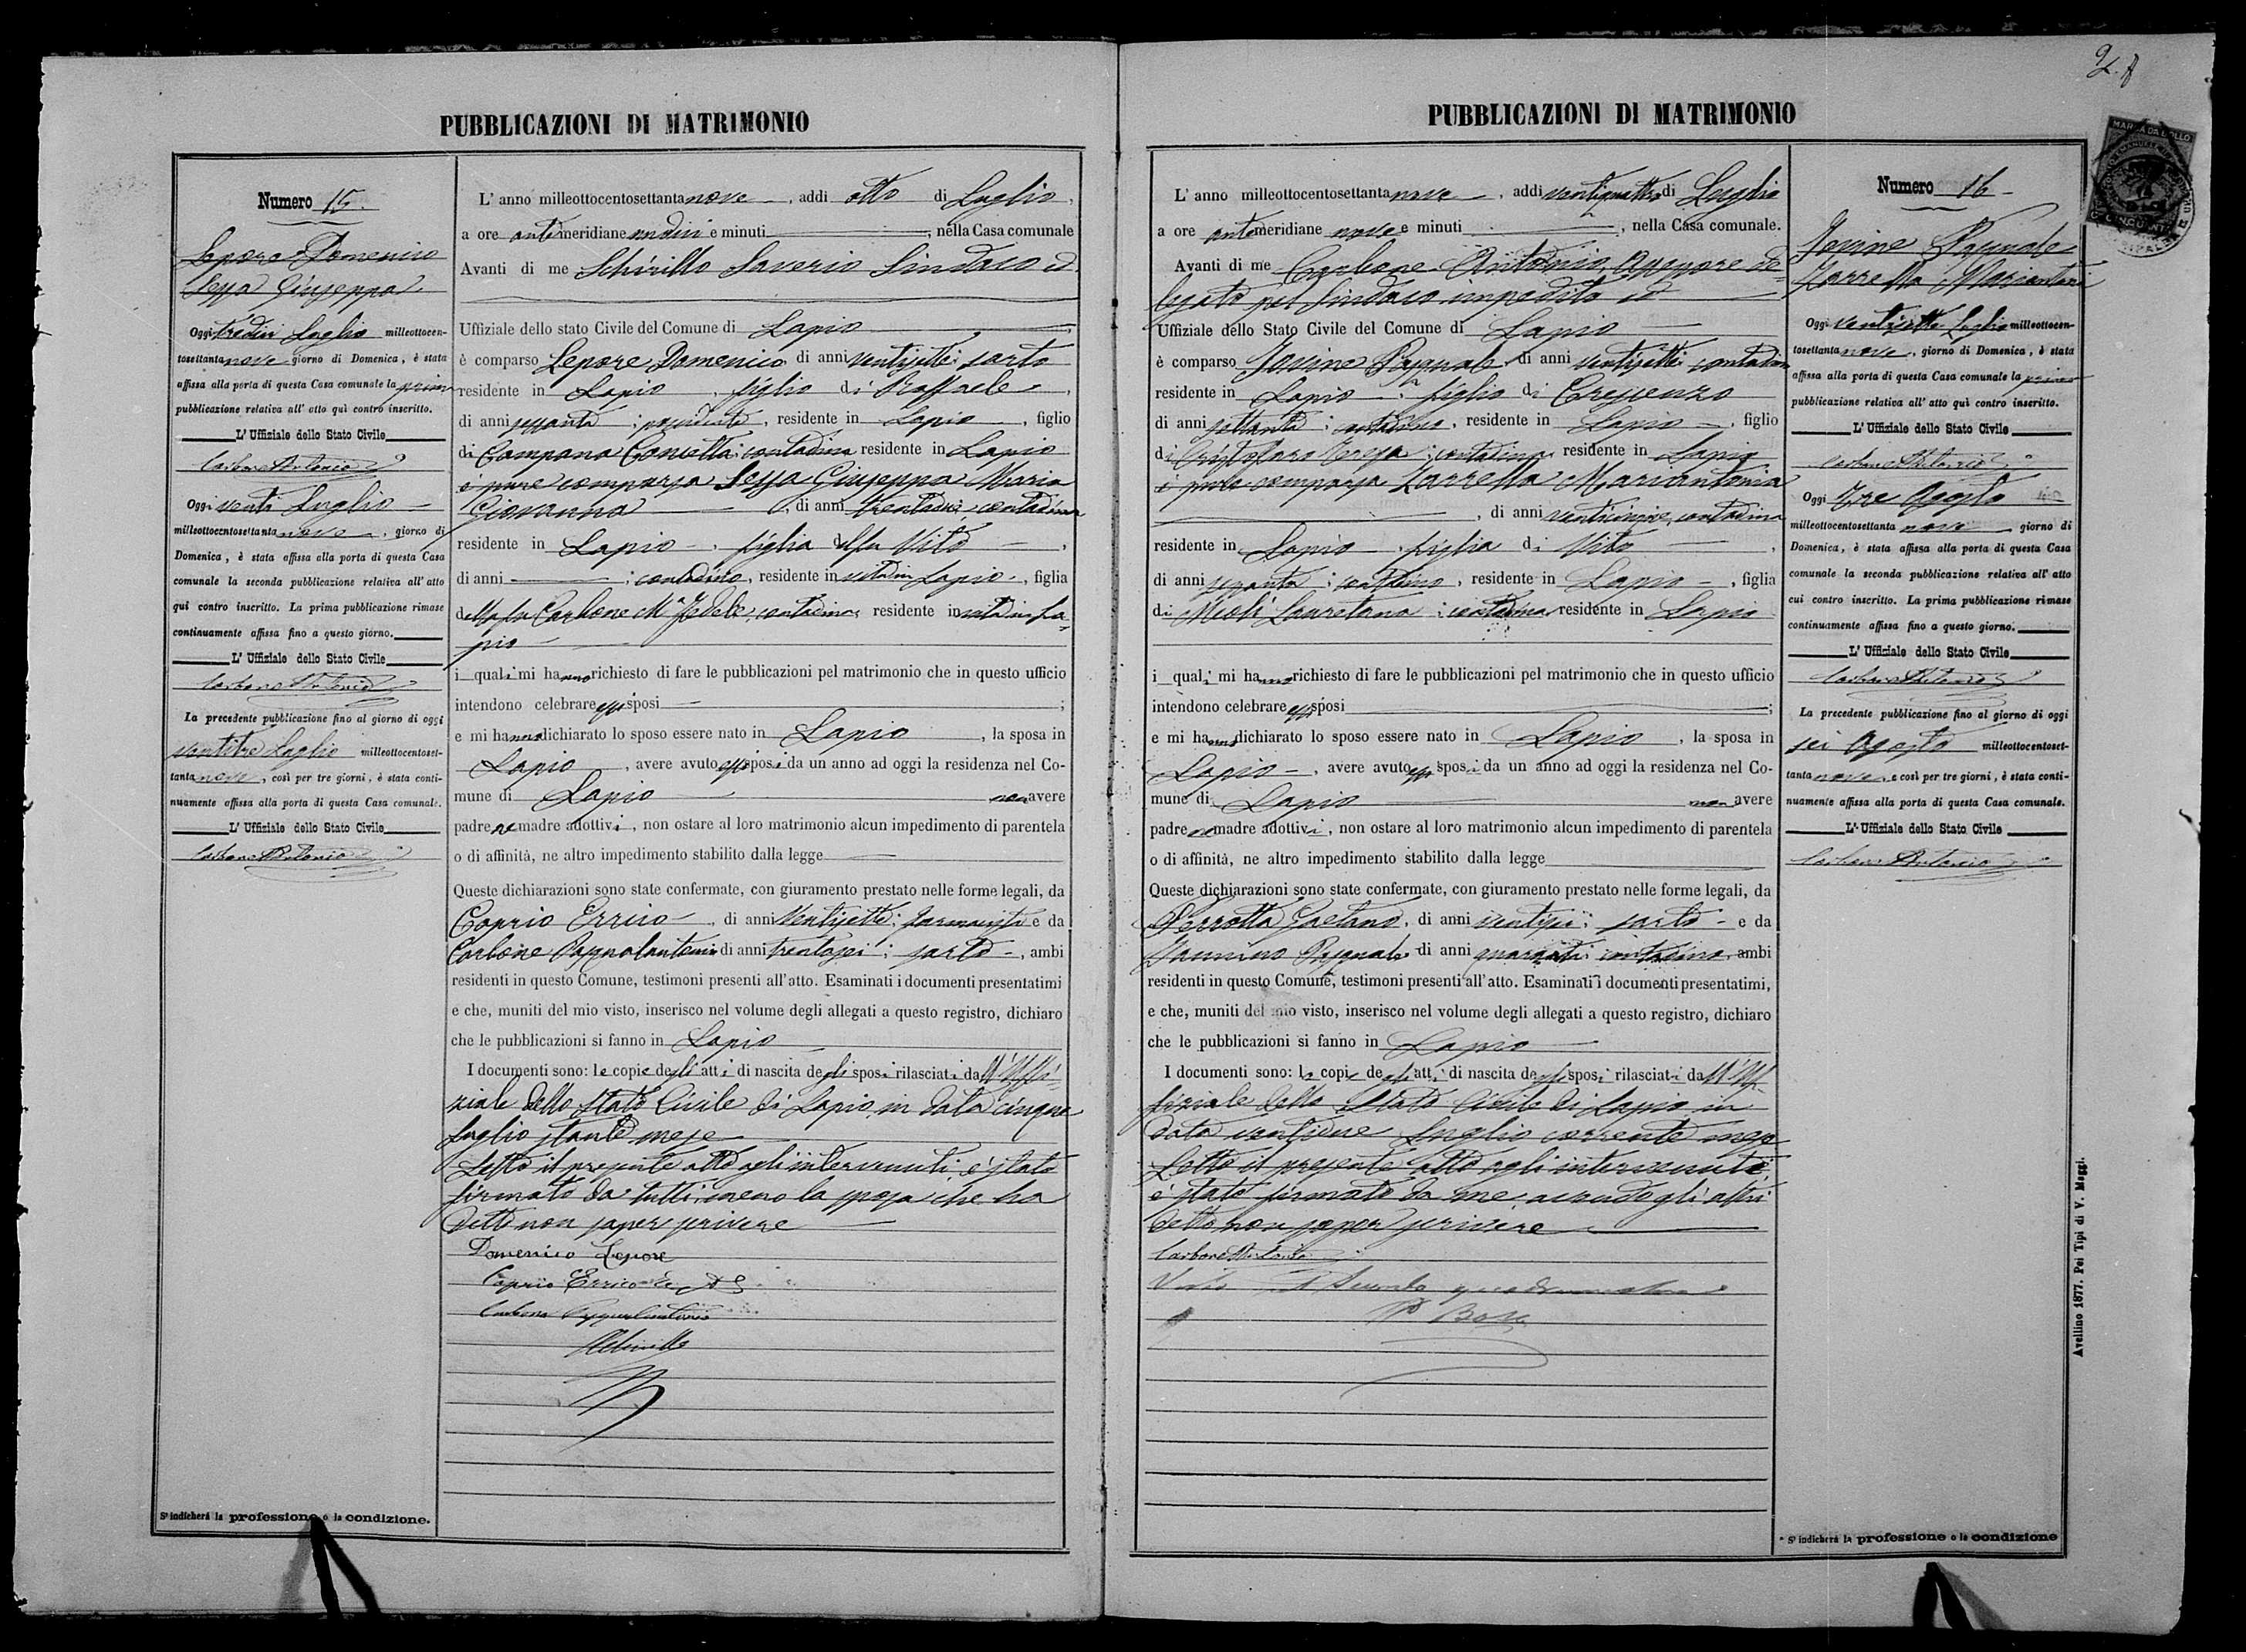 PUBBLICAZIONI DI MATRIMONIO
Numero 15.
Lepore Domenico
Sessa Giuseppa
Oggi tredici Luglio milleottocen-
tosettantanove giorno di Domenica, è stata
affissa alla porta di questa Casa comunale la prima
pubblicazione relativa all' atto quì contro inscritto.
L' Uffiziale dello Stato Civile
Carbone Antonio
Oggi venti Luglio
milleottocentosettantanove, giorno di
Domenica, è stata affissa alla porta di questa Casa
comunale la seconda pubblicazione relativa all' atto
qui contro inscritto. La prima pubblicazione rimase
continuamente affissa fino a questo giorno.
L' Uffiziale dello Stato Civile
Carbone Antonio
La precedente pubblicazione fino al giorno di oggi
ventitre Luglio milleottocentoset-
tantanove, così per tre giorni, è stata conti-
nuamente affissa alla porta di questa Casa comunale.
L' Uffiziale dello Stato Civile
Carbone Antonio
Si indicherà la professione o la condizione.
L' anno milleottocentosettantanove, addi otto di Luglio,
a ore antimeridiane undici e minuti , nella Casa comunale
Avanti di me Schirillo Saverio Sindaco ed
Uffiziale dello stato Civile del Comune di Lapio
è comparso Lepore Domenico, di anni ventisette; sarto
residente in Lapio, figlio di Raffaele,
di anni sessanta; possidente, residente in Lapio, figlio
di Campana Concetta; contadina residente in Lapio
è pure comparsa Sessa Giuseppa Maria
Giovanna, di anni trentadue; contadina
residente in Lapio, figlia del fu Vito,
di anni ; contadino, residente in vita in Lapio, figlia
della fu Carbone Mª Fedele; contadina, residente in vita in La-
pio
i quali mi hanno richiesto di fare le pubblicazioni pel matrimonio che in questo ufficio
intendono celebrare essi sposi ;
e mi hanno dichiarato lo sposo essere nato in Lapio, la sposa in
Lapio, avere avuto essi sposi da un anno ad oggi la residenza nel Co-
mune di Lapio non avere
padre ne madre adottivi, non ostare al loro matrimonio alcun impedimento di parentela
o di affinità, ne altro impedimento stabilito dalla legge
Queste dichiarazioni sono state confermate, con giuramento prestato nelle forme legali, da
Caprio Errico, di anni ventisette; farmacista e da
Carbone Pasqualantonio di anni trentasei; sarto, ambi
residenti in questo Comune, testimoni presenti all'atto. Esaminati i documenti presentatimi
e che, muniti del mio visto, inserisco nel volume degli allegati a questo registro, dichiaro
che le pubblicazioni si fanno in Lapio
I documenti sono: le copie degli atti di nascita degli sposi rilasciati dall'Uffi-
ziale dello Stato Civile di Lapio in data cinque
Luglio stante mese
Letto il presente atto agli intervenuti, è stato
firmato da tutti, meno la sposa che ha
detto non saper scrivere
Domenico Lepore
Caprio Errico
Carbone Pasqualantonio
Schirillo
PUBBLICAZIONI DI MATRIMONIO
L' anno milleottocentosettantanove, addi ventiquattro di Luglio
a ore antimeridiane nove e minuti , nella Casa comunale.
Avanti di me Carbone Antonio, Assessore de-
legato pel Sindaco impedito ed
Uffiziale dello Stato Civile del Comune di Lapio
è comparso Iovine Pasquale di anni ventisette; contadino
residente in Lapio, figlio di Crescenzo
di anni settanta; contadino, residente in Lapio, figlio
di Teresa; contadina, residente in Lapio
è pure comparsa Zarrella Mariantonia
, di anni venticinque, contadina
residente in Lapio, figlia di Vito,
di anni sessanta; contadino, residente in Lapio, figlia
di Meoli Lauretana; contadina residente in Lapio
i quali mi hanno richiesto di fare le pubblicazioni pel matrimonio che in questo ufficio
intendono celebrare essi sposi ;
e mi hanno dichiarato lo sposo essere nato in Lapio, la sposa in
Lapio, avere avuto essi sposi da un anno ad oggi la residenza nel Co-
mune di Lapio non avere
padre ne madre adottivi, non ostare al loro matrimonio alcun impedimento di parentela
o di affinità, ne altro impedimento stabilito dalla legge
Queste dichiarazioni sono state confermate, con giuramento prestato nelle forme legali, da
Perrotta Gaetano, di anni ventisei; sarto e da
Pasquale di anni quaranta; contadino, ambi
residenti in questo Comune, testimoni presenti all'atto. Esaminati i documenti presentatimi,
e che, muniti del mio visto, inserisco nel volume degli allegati a questo registro, dichiaro
che le pubblicazioni si fanno in Lapio
I documenti sono: le copie degli atti di nascita degli sposi rilasciati dall'Uf-
fiziale dello Stato Civile di Lapio in
data ventidue Luglio corrente mese
Letto il presente atto agli intervenuti
è stato firmato da me, avendo gli altri
detto non saper scrivere
Carbone Antonio
Numero 16
Iovine Pasquale
Zarrella Mariantonia
Oggi ventisette Luglio milleottocen-
tosettantanove, giorno di Domenica, è stata
affissa alla porta di questa Casa comunale la prima
pubblicazione relativa all' atto quì contro inscritto.
L' Uffiziale dello Stato Civile
Carbone Antonio
Oggi tre Agosto
milleottocentosettanta nove giorno di
Domenica, è stata affissa alla porta di questa Casa
comunale la seconda pubblicazione relativa all' atto
cui contro inscritto. La prima pubblicazione rimase
continuamente affissa fino a questo giorno.
L' Uffiziale dello Stato Civile
Carbone Antonio
La precedente pubblicazione fino al giorno di oggi
sei Agosto milleottocentoset-
tantanove, e così per tre giorni, è stata conti-
nuamente affissa alla porta di questa Casa comunale.
L' Uffiziale dello Stato Civile
Carbone Antonio
* Si indicherà la professione o la condizione
MARCA DA BOLLO
Avellino 1877. Pei Tipi di V. Maggi.